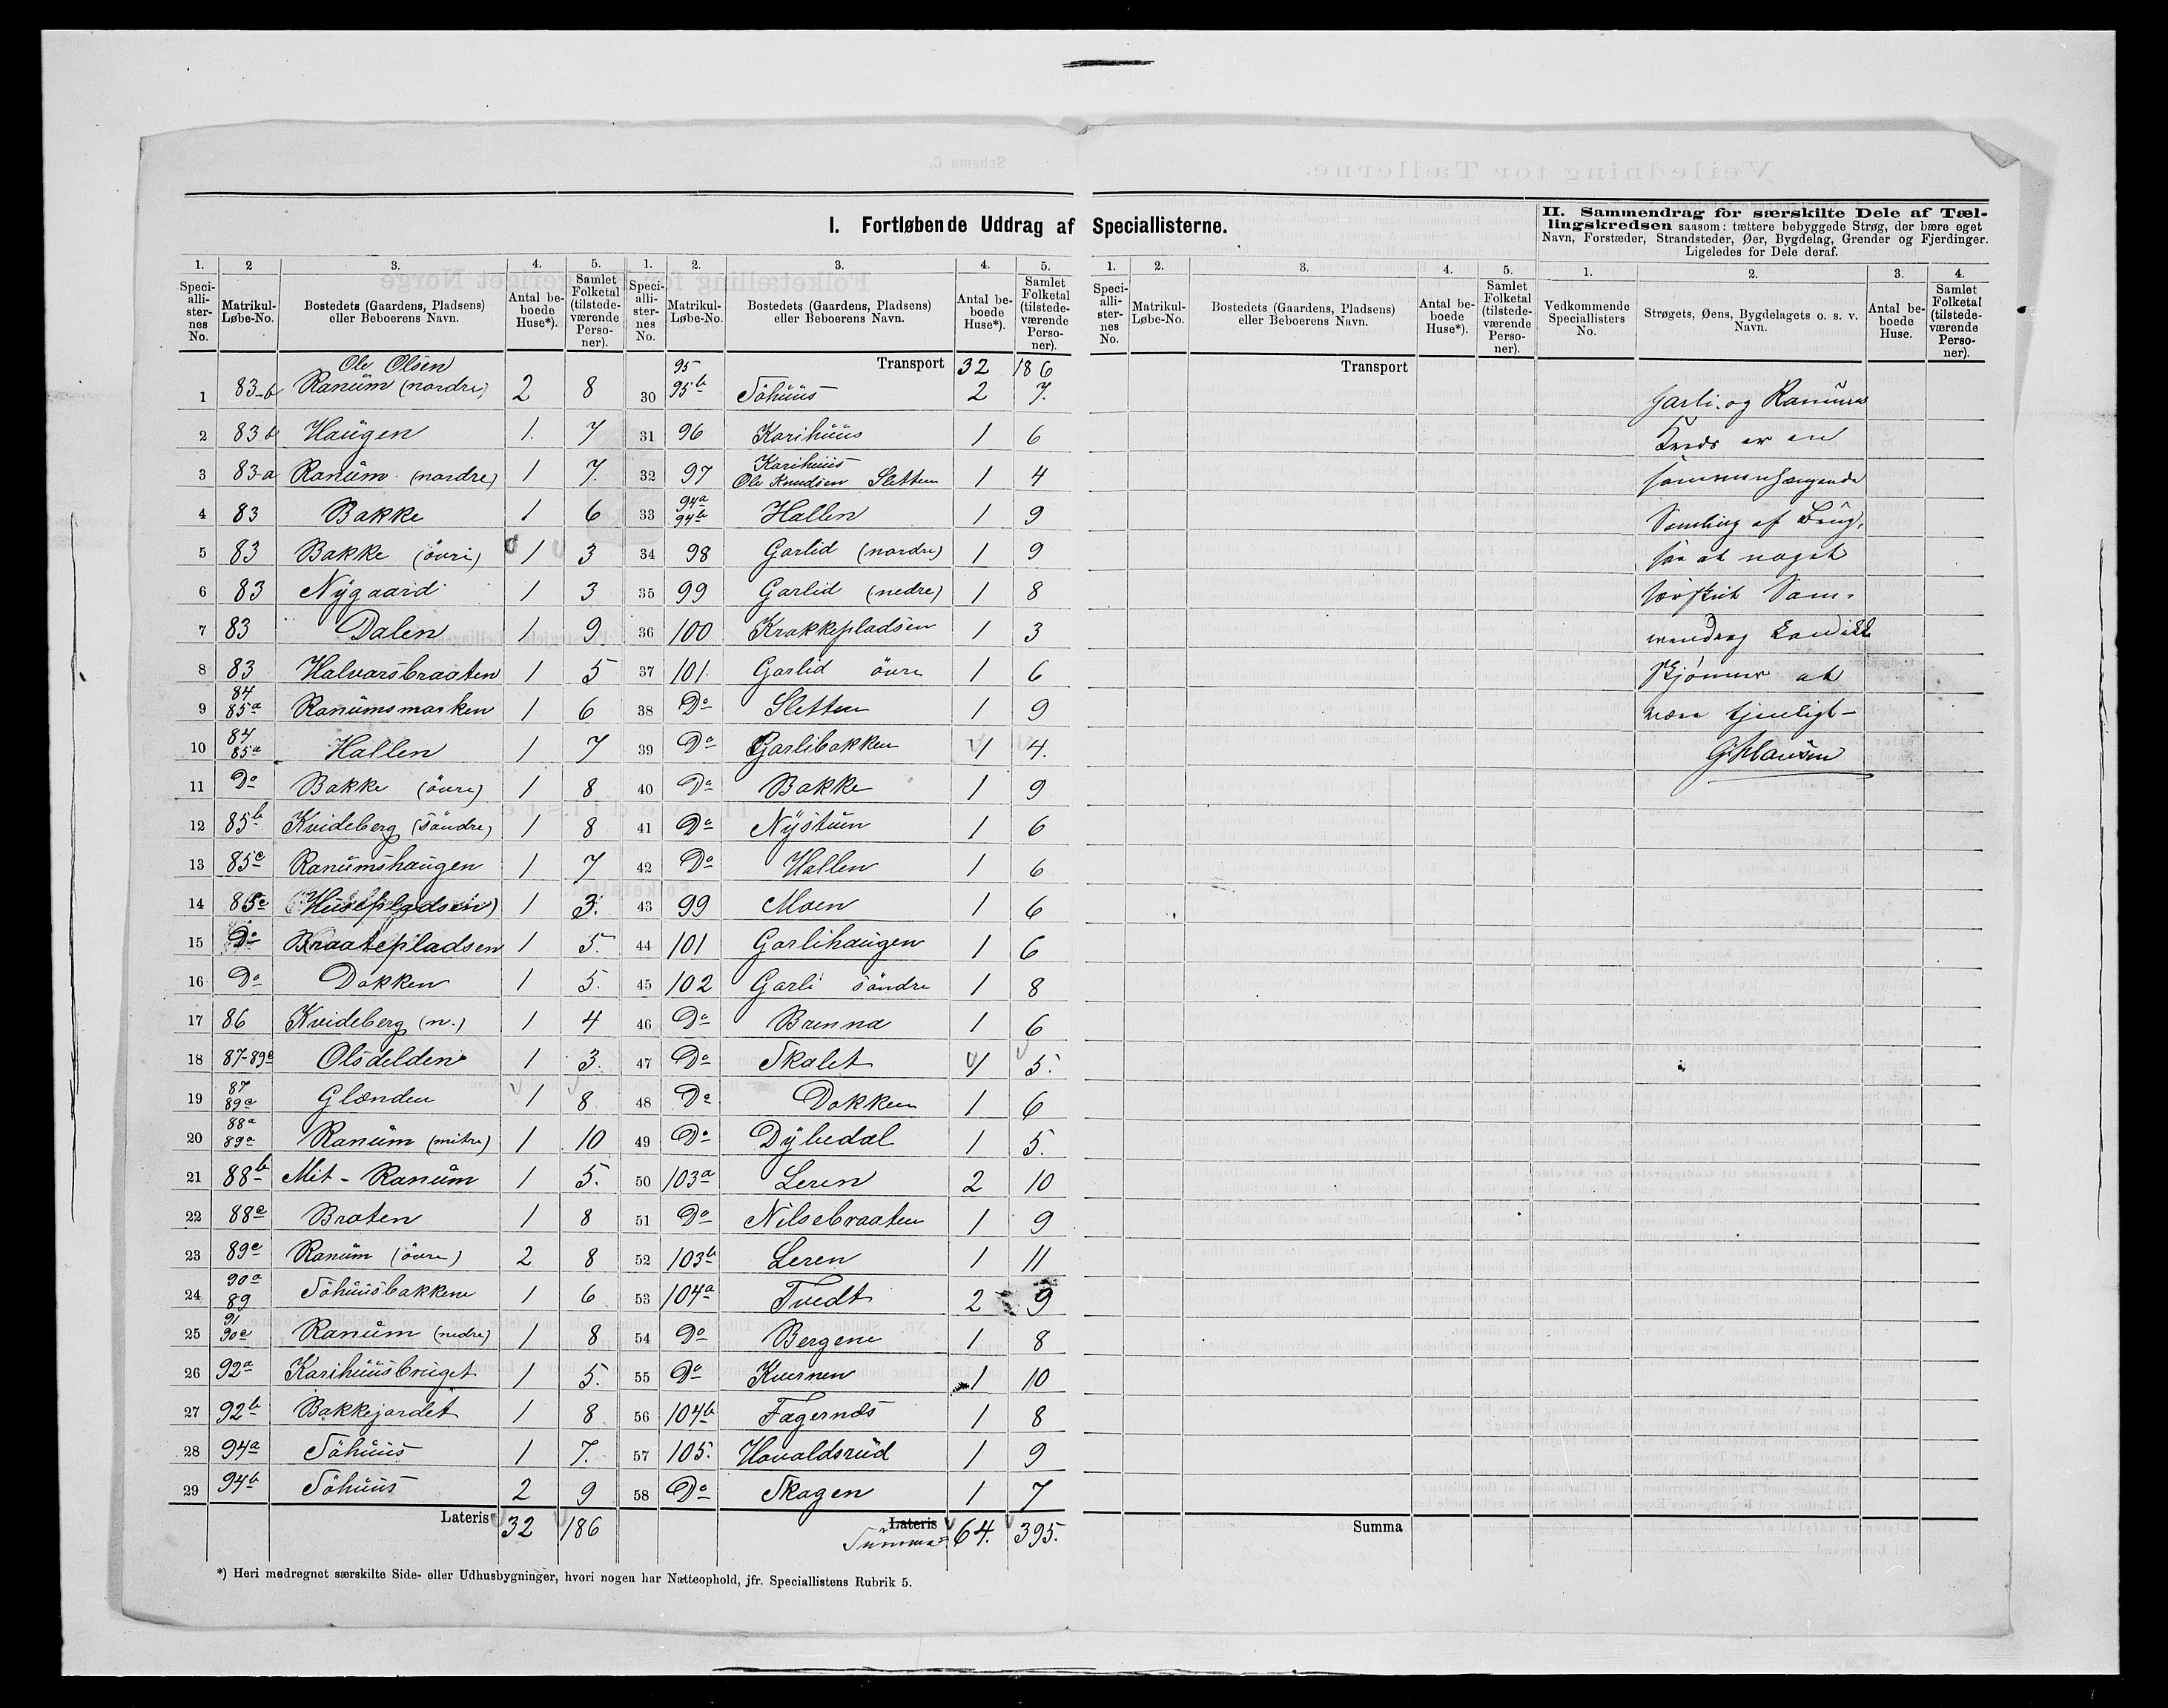 I. Fortløbende Uddrag af Speciallisterne.
II. Sammendrag for særskilte Dele af Tæl-
lingskredsen saasom: tættere bebyggede Strøg, der bære eget
Navn, Forstæder, Strandsteder, Øer, Bygdelag, Grender og Fjerdinger.
Ligeledes for Dele deraf.
1. 2 3. 4. 5. 1. 2. 3. 4. 5.
Speci-alli-ster-nes No. Matrikul-Løbe-No. Bostedets (Gaardens, Pladsens) eller Beboerens Navn. Antal be-boede Huse*). Samlet Folketal (tilstede-værende Perso-ner).
Speci-alli-ster-nes No. Matrikul-Løbe-No. Bostedets (Gaardens, Pladsens) eller Beboerens Navn. Antal be-boede Huse*). Samlet Folketal (tilstede-værende Perso-ner).
Ole Olsen
1 83-b Ranum (nordre) 2 8
2 83 b Haugen 1. 7
3 83-a Ranum (nordre) 1 7.
4 83 Bakke 1 6
5 83 Bakke (övri) 1 3
6 83 Nygaard 1 3
7 83 Dalen 1 9
8 83 Halvarsbraaten 1 5
9 84 85a Ranumsmarken 1 6
10 84 85a Hallen 1 7
11 Do Bakke (övre) 1 8
12 85b Kvideberg (söndre) 1 8
13 85c Ranumshaugen 1 7
14 85c (Huseplgdsen) 1 3.
15 Do Braatepladsen 1 5.
16 Do Dokken 1 5.
17 86 Kvideberg (n.) 1 4
18 87-89c Olsdelden 1 3.
19 87 89a Glænden 1 8
20 88a 89a Ranum (mitre) 1 10
21 88b Mit-Ranum 1 5.
22 88c Braten 1 8
23 89c Ranum (övre) 2 8
24 90a 89 Söhuusbakkene 1 6
25 91 90c Ranum (nedre) 1 8
26 92a Karihuusbruget 1 5.
27 92b Bakkejordet 1 8
28 94a Söhuus 1 7.
29 94b Söhuus 2 9
Lateris 32 186
Transport 32 186
30 95 95b Söhuus 2 7.
31 96 Karihuus 1 6
32 97 Karihuus Ole Knudsen Sletten 1 4
33 94a 94b Hallen 1 9
34 98 Garlid (nordre) 1 9
35 99 Garlid (nedre) 1 8
36 100 Krakkepladsen 1 3
37 101. Garlid övre 1 6
38 Do Sletten 1 9
39 Do Garlibakken 1 4.
40 Do Bakke 1 9
41 Do Nystuen 1 6
42 Do Hallen 1 6
43 99 Moen 1 6
44 101 Garlihaugen 1 6
45 102 Garli söndre 1 8
46 Do Brenna 1 6
47 Do Skalet 1 5.
48 Do Dokken 1 6
49 Do Dybedal 1 5.
50 103a Leren 2 10
51 Do Nilsebraaten 1 9
52 103b Leren 1 11
53 104a Tvedt 2 9
54 Do Bergene 1 8
55 Do Kvernen 1 10
56 104b Fagernds 1 8
57 105. Havaldsrud 1 9
58 Do Skagen 1 7
Lateris
Summa 64. 395.
*) Heri medregnet særskilte Side- eller Udhusbygninger, hvori nogen har Natteophold, jfr. Speciallistens Rubrik 5.
1. 2. 3. 4. 5. 1. 2. 3. 4.
Speci-alli-ster-nes No. Matrikul-Løbe-No. Bostedets (Gaardens, Pladsens) eller Beboerens Navn. Antal be-boede Huse*). Samlet Folketal (tilstede-værende Perso-ner).
Vedkommende Speciallisters No. Strøgets, Øens, Bygdelagets o. s. v. Navn. Antal be-boede Huse. Samlet Folketal (tilstede-værende Perso-ner).
Transport
Garli- og Ranums
Kreds er en
sammenhængende
Samling af Brug,
saa at noget
særskilt Sam-
mendrag kan ikke
skjönnes at
være tjenligt-
Summa